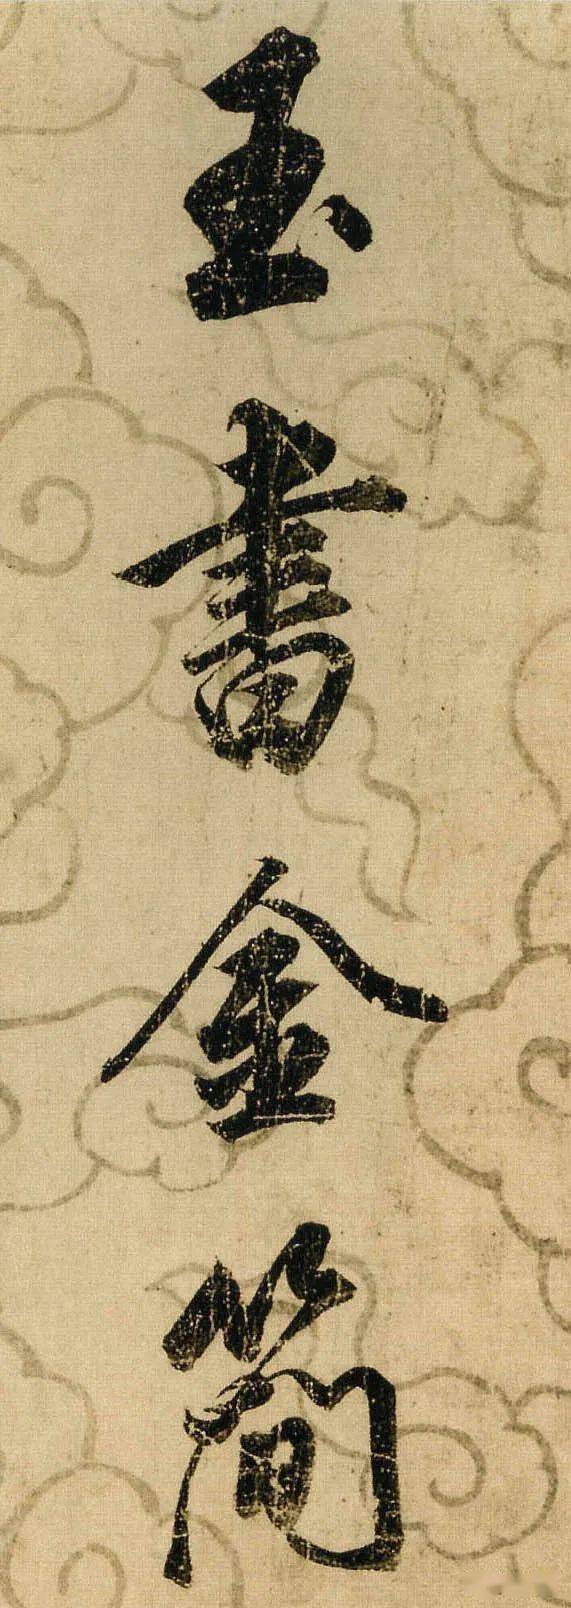 玉書金簡